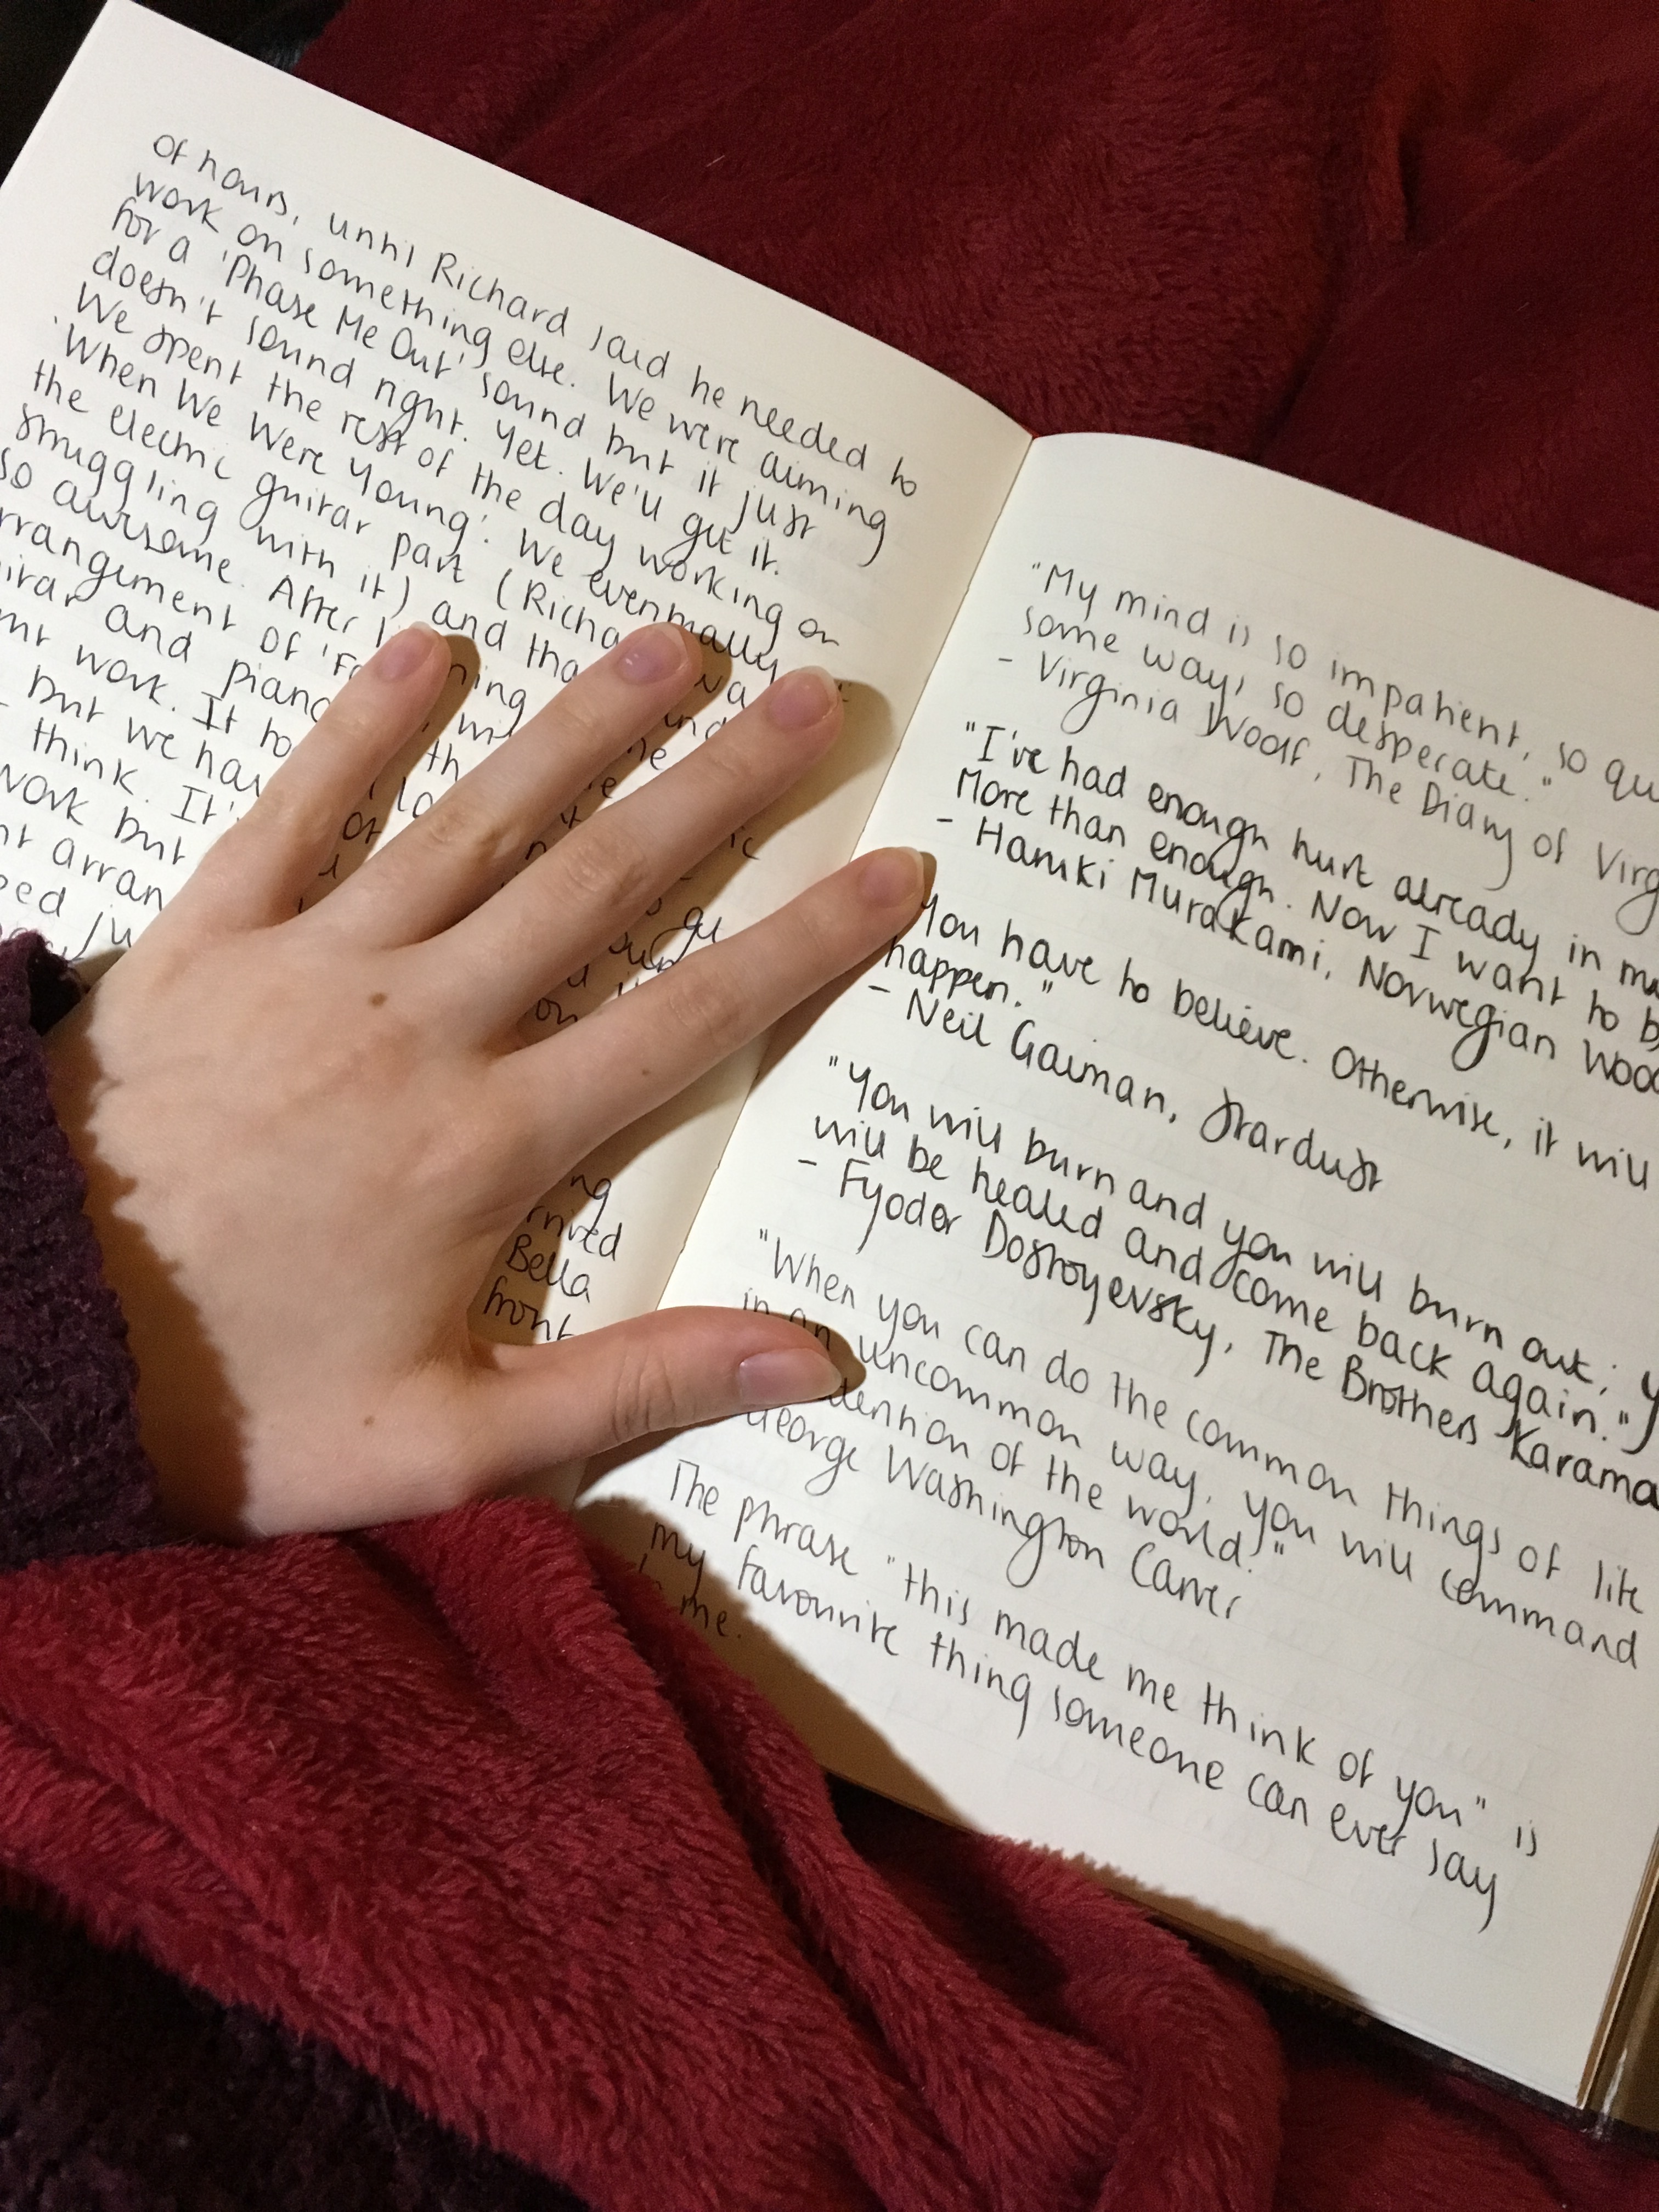 of hours, until Richard said he needed to
work on something else. We were aiming
for a 'Phase Me Out' sound but it just
doesn't sound right. Yet. We'll get it.
We spent the rest of the day working on
'When We Were Young'. We eventually
the electric guitar part (Richa
struggling with it) and tha
so awesome. After ning
rrangement of 'Fo
itar and piano
work. It ho
but we hav
think. It's
work but
nt arran
ped ju
ng
rnited
Bella
front
"My mind is so impatient, so qu
some ways so desperate."
- Virginia Woolf, The Diary of Virg
"I've had enough hurt already in my
More than enough. Now I want to b
- Haruki Murakami, Norwegian Wood
You have to believe. Otherwise, it will
happen."
- Neil Gaiman, Stardust
"You will burn and you will burn out; y
will be healed and come back again."
- Fyodor Dostoyevsky, The Brothers Karama
"When you can do the common things of life
in an uncommon way, you will command
attention of the world."
George Washington Carver
The phrase "this made me think of you" is
my favourite thing someone can ever say
to me.